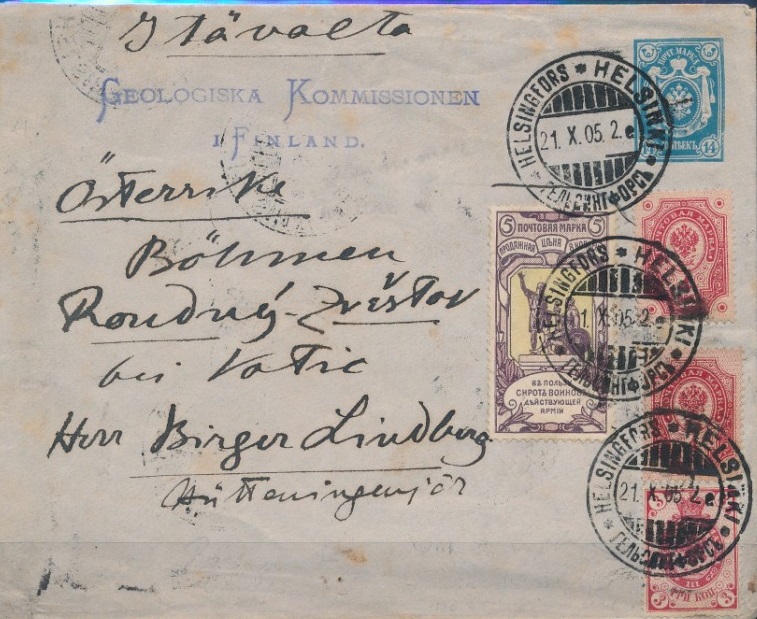 Itävalta
GEOLOGISKA KOMMISSIONEN
I FINLAND.
Österrike
Böhmen
Roudný-Zvěstov
bei Vatic
Herr Birger Lindberg
Hütteningenjör
HELSINGFORS * HELSINKI *
21. X. 05. 2. e
ГЕЛЬСИНГФОРСЪ
14
5 5
ПОЧТОВАЯ МАРКА
ПРОДАЖНАЯ ЦѢНА
ВЪ ПОЛЬЗУ
СИРОТЪ ВОИНОВЪ
ДѢЙСТВУЮЩЕЙ
АРМІИ
ПОЧТОВАЯ МАРКА
HELSINGFORS * HELSINKI *
X. 05. 2.
ГЕЛЬСИНГФОРСЪ
HELSINGFORS * HELSINKI *
21. X. 05. 2. e
ГЕЛЬСИНГФОРСЪ
3 ТРИ КОП. 3